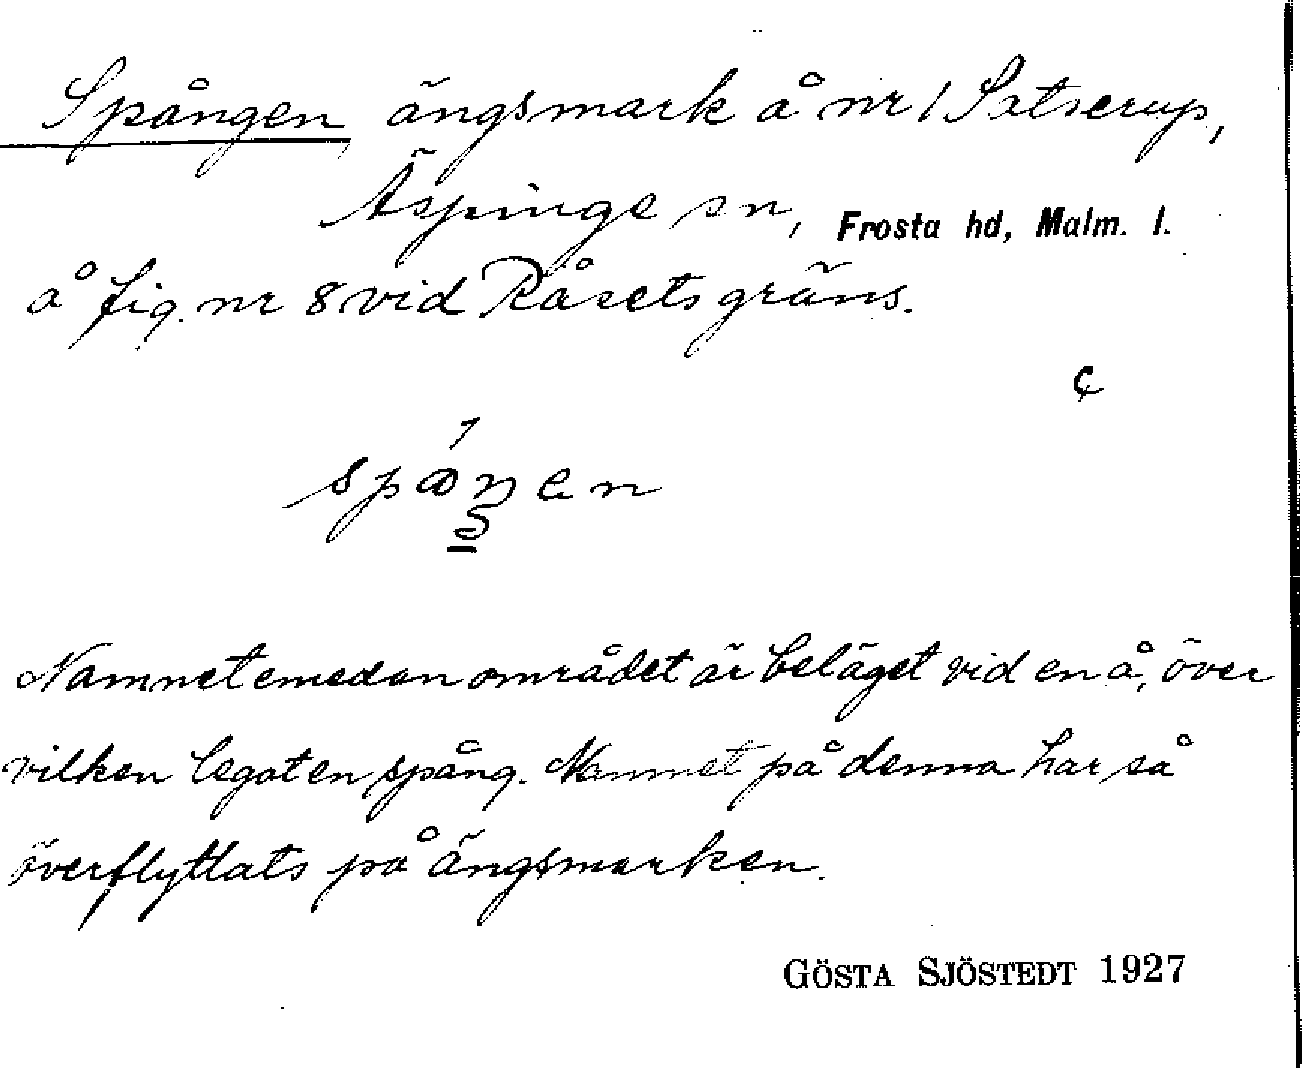 Spången, ängsmark å nr 1 Satserup,
Äspinge sn, Frosta hd, Malm. l.
å fig. nr 8 vid Råsets gräns.
¢
Namnet emedan området är beläget vid en å, över
vilken legat en spång. Namnet på denna har så
överflyttats på ängsmarken.
GÖSTA SJÖSTEDT 1927